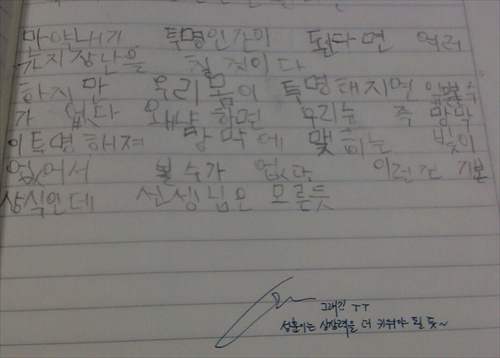 만약내가 투명인간이 된다면 여러
가지장난을 칠것이다
하지만 우리몸이 투명해지면 앞볼수
가 없다 왜냐하면 우리눈 즉 망막
이투명해져 망막에 맺히는 빛이
없어서 볼수가 없다 이런건 기본
상식인데 선생님은 모른듯
그래긴 ㅜㅜ
성훈이는 상상력을 더 키워야 될 듯~